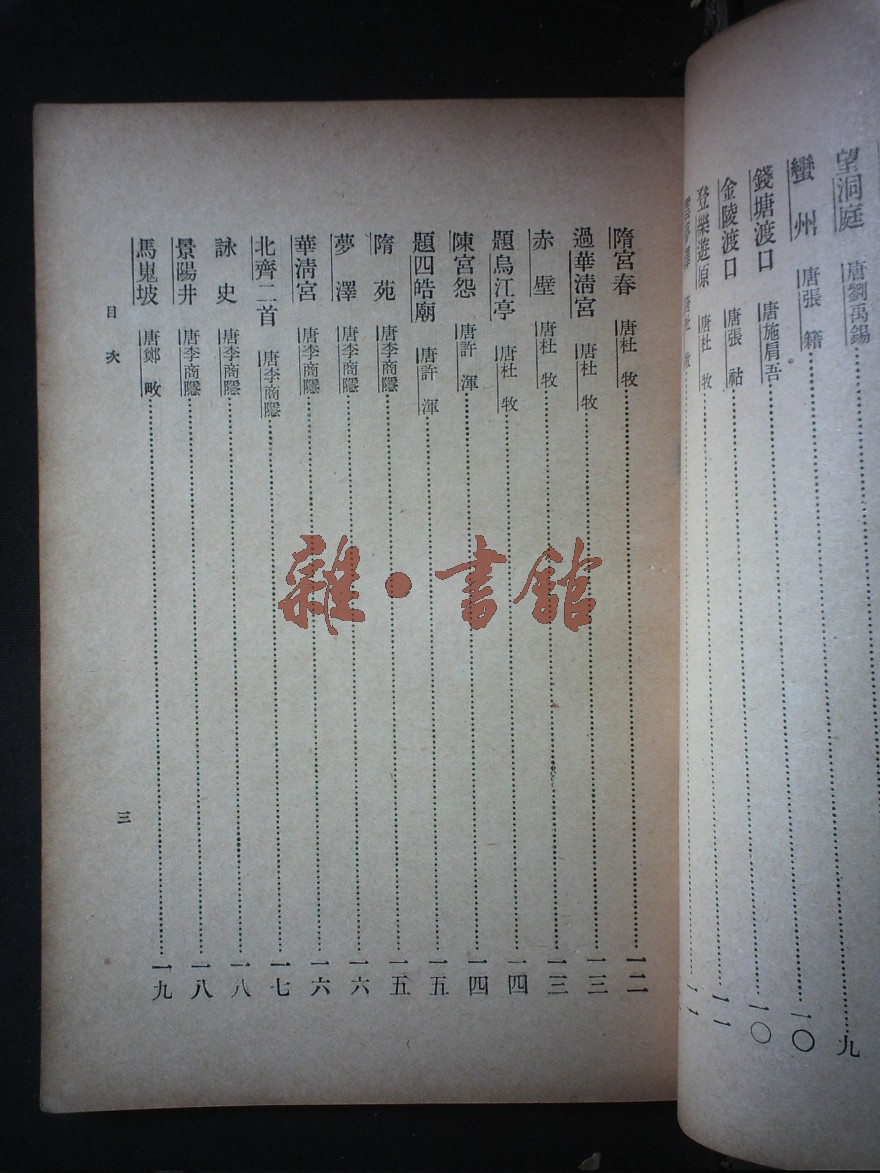 望洞庭 唐劉禹錫 九
蠻州 唐張籍 一〇
錢塘渡口 唐施肩吾 一〇
金陵渡口 唐張祜 一一
登樂遊原 唐杜牧 一一
隋宮春 唐杜牧 一二
過華清宮 唐杜牧 一三
赤壁 唐杜牧 一三
題烏江亭 唐杜牧 一四
陳宮怨 唐許渾 一四
題四皓廟 唐許渾 一五
隋苑 唐李商隱 一五
夢澤 唐李商隱 一六
華清宮 唐李商隱 一六
北齊二首 唐李商隱 一七
詠史 唐李商隱 一八
景陽井 唐李商隱 一八
馬嵬坡 唐鄭畋 一九
目次
三
雜·書館